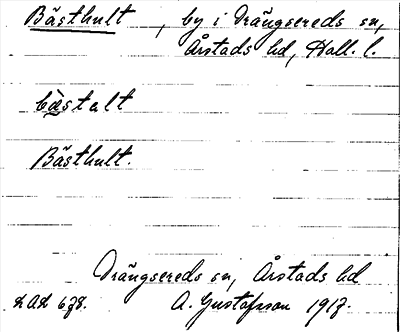 Bästhult, by i Drängsereds sn,
Årstads hd, Hall. l.
bästalt
Bästhult.
Drängsereds sn, Årstads hd
A. Gustafsson 1917.